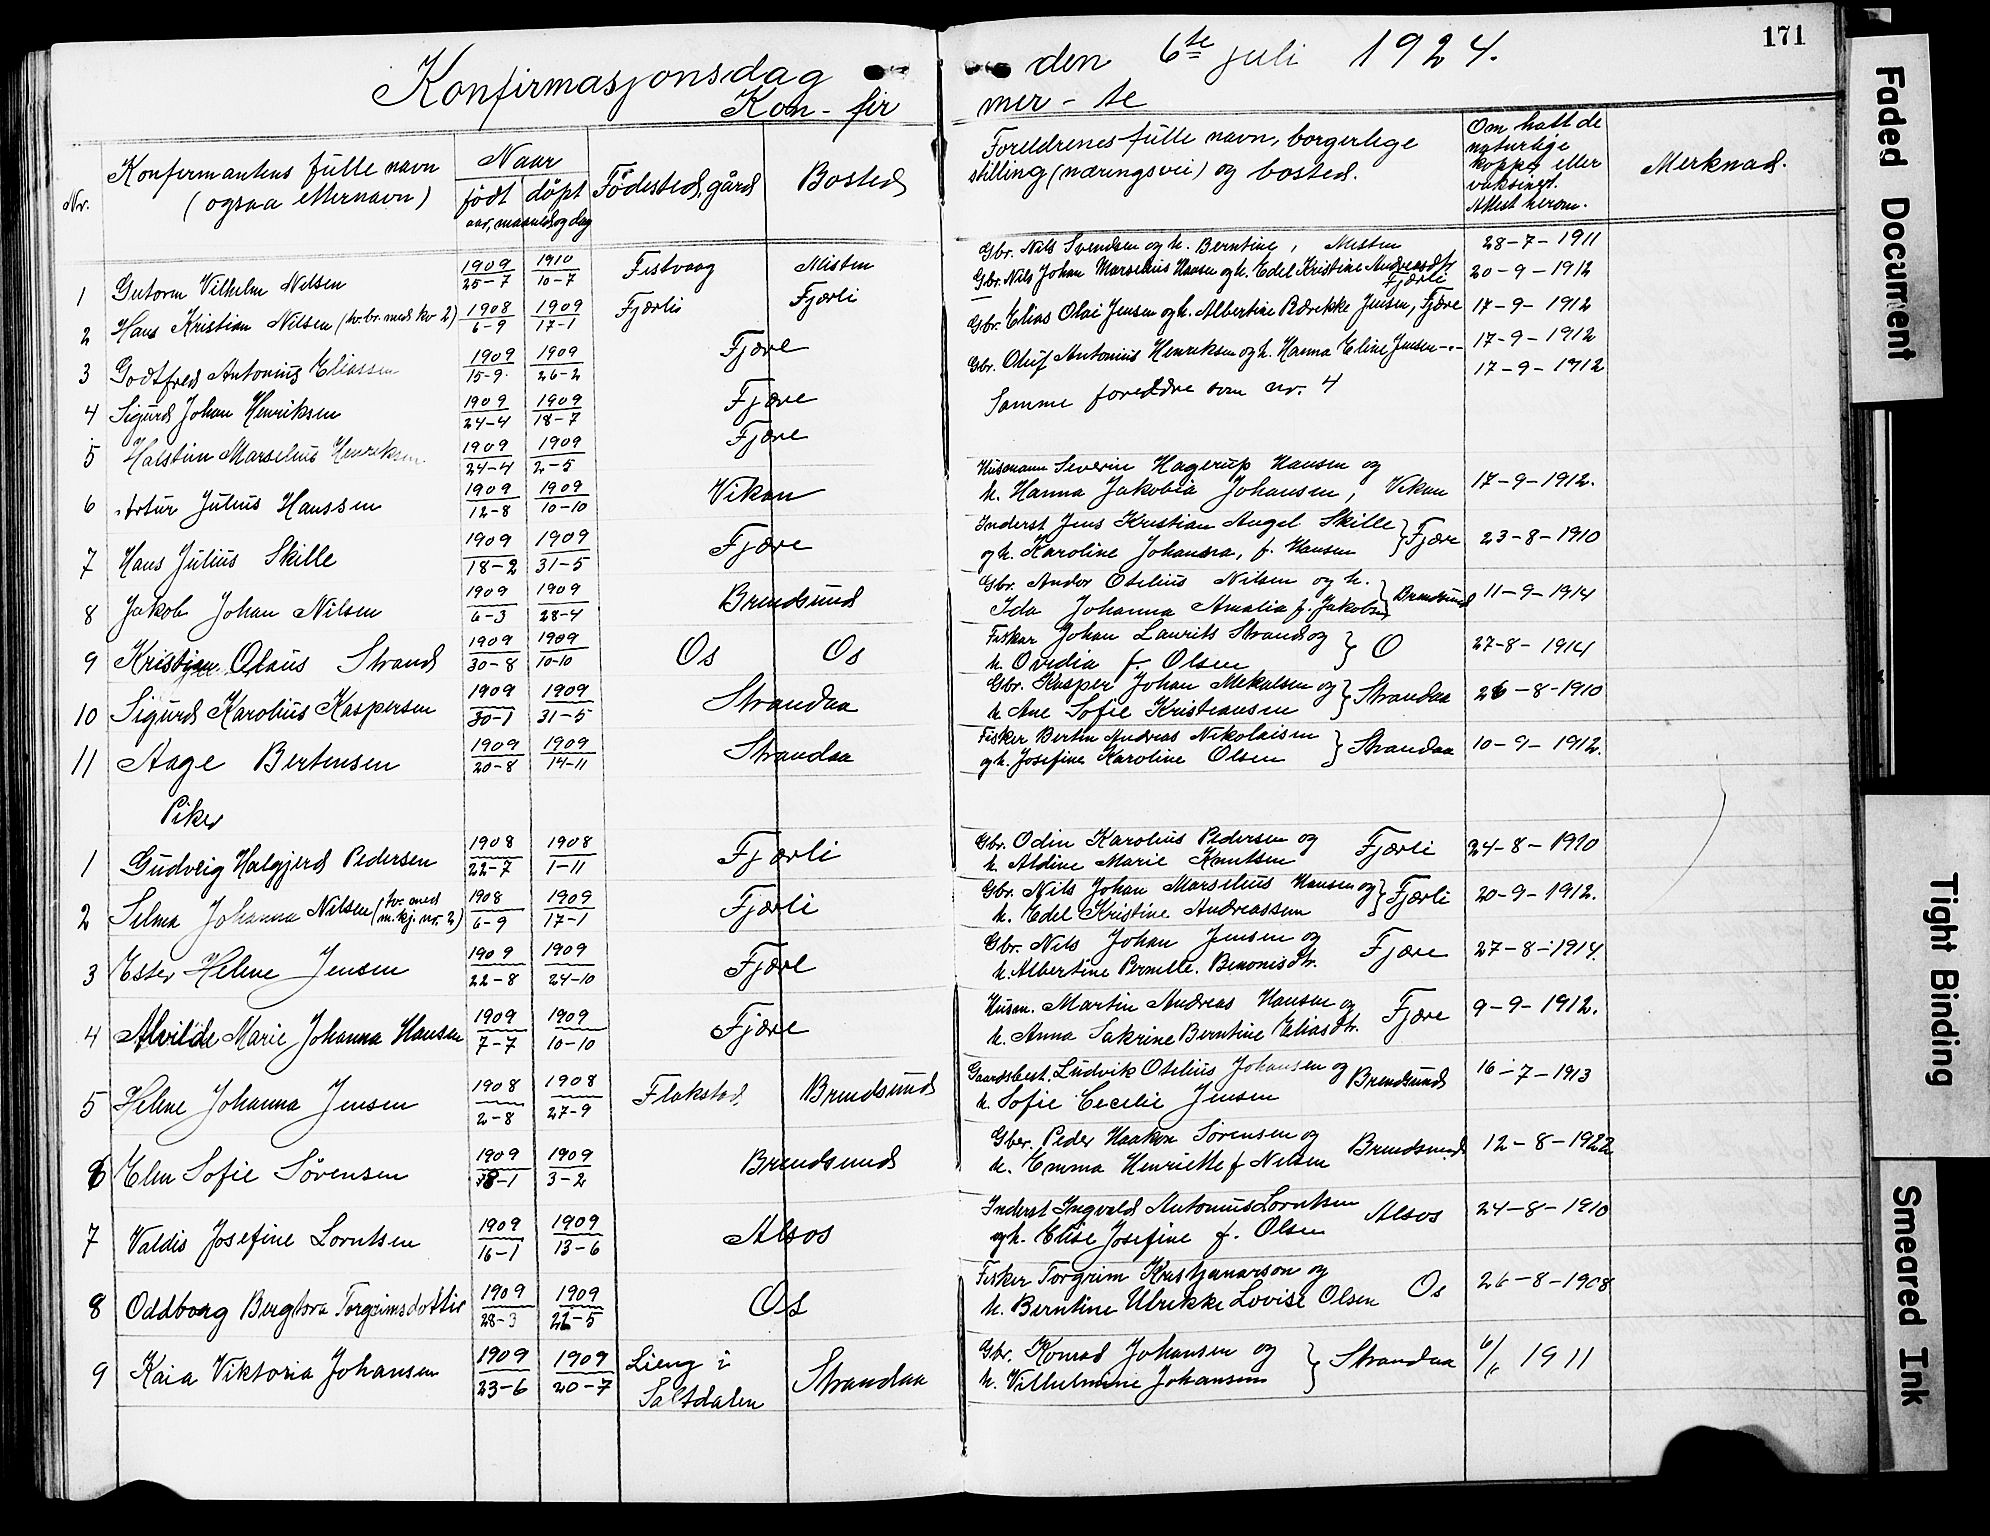 171
Konfirmasjonsdag den 6te juli 1924.
Kon-fir mer-te
Nr.
Konfirmantens fulle navn (ogsaa etternavn)
Naar
født døpt
aar, maaned og dag
Födested, gård
Bosted
Foreldrenes fulle navn, borgerlige stilling (næringsvei) og bosted.
Om hatt de naturlige kopper eller vaksinert. Attest herom.
Merknad.
1 Gutorm Vilhelm Nilsen 1909 25-7 1910 10-7 Festvaag Misten Gbr. Nils Svendsen og h. Berntine, Misten 28-7-1911
2 Hans Kristian Nilsen (tv.br. med kv 2) 1908 6-9 1909 17-1 Fjærli Fjærli Gbr. Nils Johan Marselius Hansen og h. Edel Kristine Andreasdtr. Fjærli 20-9-1912
3 Godtfred Antonius Eliassen 1909 15-9 1909 26-2 Fjære Gbr. Elias Olai Jensen og h. Albertine Bærekke Jensen, Fjære 17-9-1912
4 Sigurd Johan Henriksen 1909 24-4 1909 18-7 Fjære Gbr. Oluf Antonius Henriksen og h. Hanna Eline Jensen -"- 17-9-1912
5 Halstein Marselius Henriksen 1909 24-4 1909 2-5 Fjære Samme foreldre som nr. 4 17-9-1912
6 Artur Julius Hanssen 1909 12-8 1909 10-10 Vikan Husmann Severin Hagerup Hansen og h. Hanna Jakobia Johansen, Vikan 17-9-1912.
7 Hans Julius Skille 1909 18-2 1909 31-5 Fjære Inderst Jens Kristian Angel Skille og h. Karoline Johanna, f. Hansen } Fjære 23-8-1910
8 Jakob Johan Nilsen 1909 6-3 1909 28-4 Brendsund Gbr. Andor Otelius Nilsen og h. Ida Johanna Amalia f. Jakobsen } Brendsund 11-9-1914
9 Kristian Olaus Strand 1909 30-8 1909 10-10 Os Os Fisker Johan Laurits Strand og h. Ovedia f. Olsen } O 27-8-1914
10 Sigurd Karolius Kaspersen 1909 30-1 1909 31-5 Strandaa Gbr. Kasper Johan Mekalsen og h. Ane Sofie Kristiansen } Strandaa 26-8-1910
11 Aage Bertensen 1909 20-8 1909 14-11 Strandaa Fisker Bertin Andreas Nikolaisen og h. Josefine Karoline Olsen } Strandaa 10-9-1912.
Piker
1 Gudveig Halgjerd Pedersen 1908 22-7 1908 1-11 Fjærli Gbr. Odin Karolius Pedersen og h. Aldine Marie Knutsen Fjærli 24-8-1910
2 Selma Johanna Nilsen (tv. med m.kj. nr. 2) 1908 6-9 1909 17-1 Fjærli Gbr. Nils Johan Marselius Hansen og h. Edel Kristine Andreassen } Fjærli 20-9-1912.
3 Ester Helene Jensen 1909 22-8 1909 24-10 Fjære Gbr. Nils Johan Jensen og h. Albertine Pernille. Benonisdtr. Fjære 27-8-1914.
4 Alvilde Marie Johanna Hansen 1909 7-7 1909 10-10 Fjære Husm. Martin Andreas Hansen og h. Anna Sakrine Berntine Eliasdtr. Fjære 9-9-1912.
5 Helene Johanna Jensen 1908 2-8 1908 27-9 Flakstad Brendsund Gaardsbest. Ludvik Otelius Johansen og h. Sofie Cecelie Jensen Brendsund 16-7-1913
6 Elen Sofie Sörensen 1909 8-1 1909 3-2 Brendsund Gber. Peder Haakon Sörensen og h. Emma Henriette f Nelsen Brendsund 12-8-1922
7 Valdis Josefine Lorntsen 1909 16-1 1909 13-6 Alsos Inderst Ingvald Antonius Lorntsen og h. Elise Josefine f. Olsen Alsos 24-8-1910
8 Oddborg Bergtora Torgrimsdottir 1909 28-3 1909 22-5 Os Fisker Torgrim Kristjanarson og h. Berntine Ulrikke Lovise Olsen Os 26-8-1908
9 Kaia Viktoria Johansen 1909 23-6 1909 20-7 Lieng i Saltdalen Strandaa Gbr. Konrad Johansen og h. Vilhelmine Johansen } Strandaa 6/6 1911
Faded Document
Tight Binding
Smeared Ink